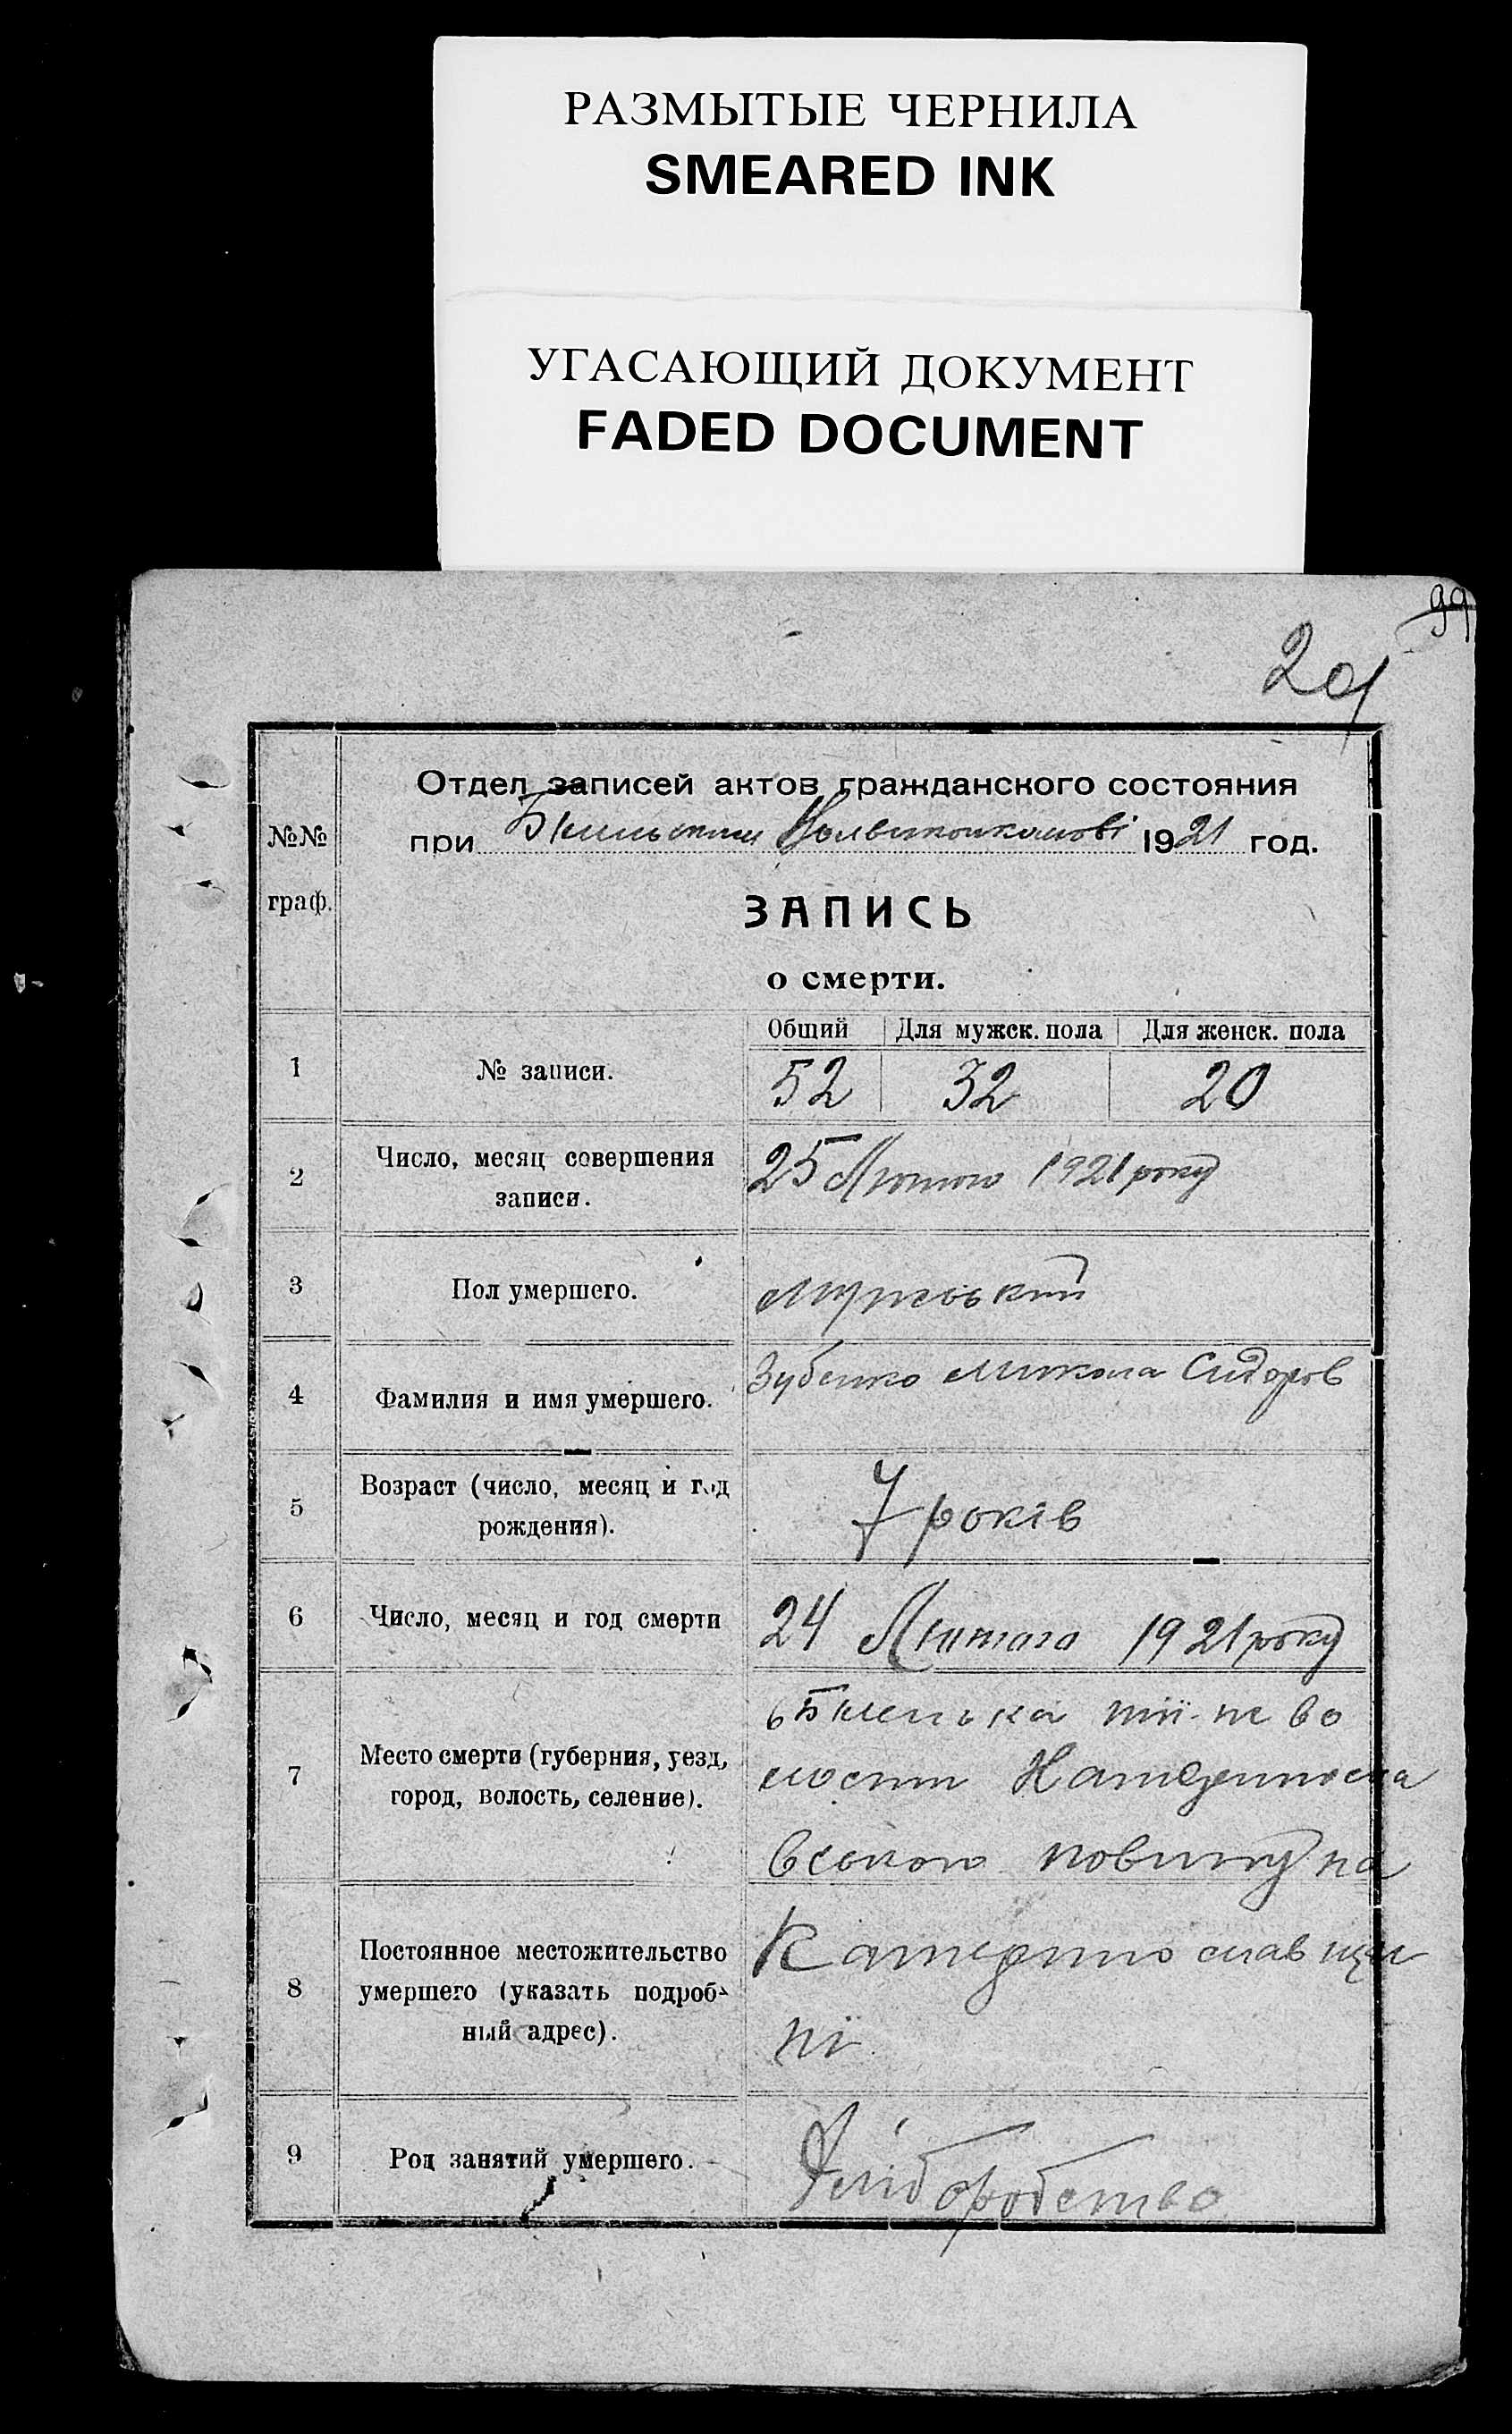 РАЗМЫТЫЕ ЧЕРНИЛА
SMEARED INK
УГАСАЮЩИЙ ДОКУМЕНТ
FADED DOCUMENT
99
Отдел записей актов гражданского состояния
при 1921 год.
№№
граф.
ЗАПИСЬ
о смерти.
Общий Для мужск. пола Для женск. пола
1 № записи. 52 32 20
2 Число, месяц совершения
записи. 25 Лютого 1921 року
3 Пол умершего. Мужський
4 Фамилия и имя умершего. Зубенко Микола Сидоров
5 Возраст (число, месяц и год
рождения). 7 років
6 Число, месяц и год смерти 24 Лютого 1921 року
7 Место смерти (губерния, уезд,
город, волость, селение).
во
лости Катериносла
вського повиту на
8 Постоянное местожительство
умершего (указать подроб-
ный адрес).
Катеринославщи
ні
9 Род занятий умершего. Хліборобство